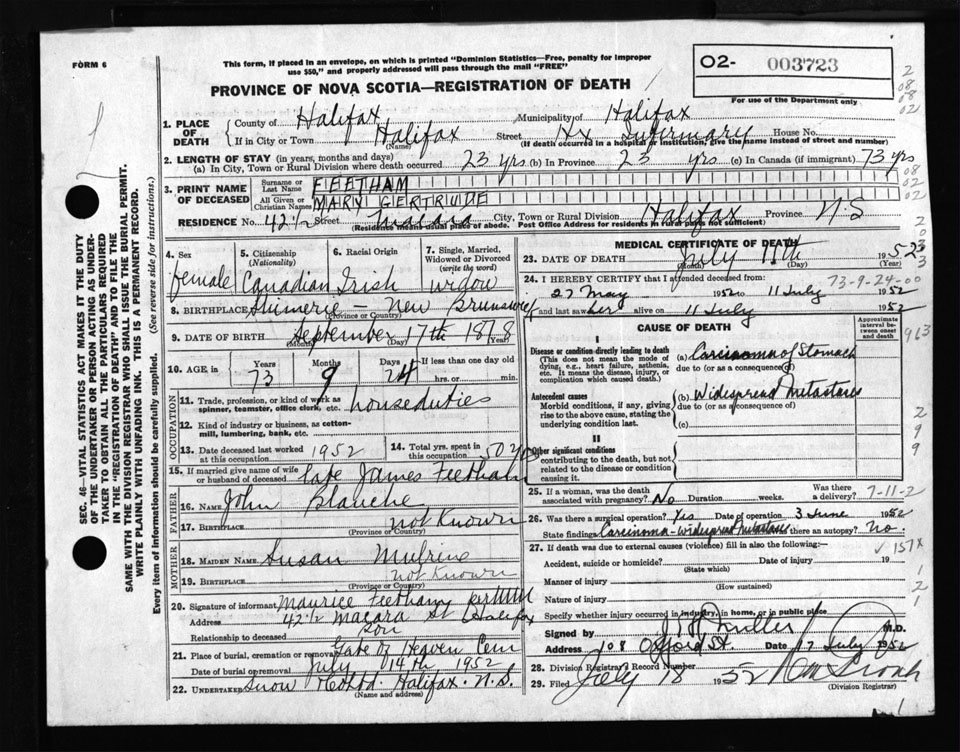 FORM 6
This form, if placed in an envelope, on which is printed "Dominion Statistics—Free, penalty for improper
use $50," and properly addressed will pass through the mail "FREE"
O2- 003723
PROVINCE OF NOVA SCOTIA—REGISTRATION OF DEATH
For use of the Department only
1. PLACE OF DEATH
County of Halifax Municipality of Halifax
If in City or Town Halifax Street Hx Infirmary House No.
(Name) (If death occurred in a hospital or institution, give the name instead of street and number)
2. LENGTH OF STAY (in years, months and days)
(a) In City, Town or Rural Division where death occurred 23 yrs (b) In Province 23 yrs (c) In Canada (if immigrant) 73 yrs
3. PRINT NAME OF DECEASED
Surname or Last Name FEETHAM
All Given or Christian Names MARY GERTRUDE
RESIDENCE No. 42 1/2 Street Macara City, Town or Rural Division Halifax Province N.S
(Residence means usual place of abode. Post Office Address for residents in rural parts not sufficient)
4. Sex female
5. Citizenship (Nationality) Canadian
6. Racial Origin Irish
7. Single, Married, Widowed or Divorced (write the word) widow
8. BIRTHPLACE New Brunswick
(Province or Country)
9. DATE OF BIRTH September 17th 1878
(Month) (Day) (Year)
10. AGE in Years 73 Months 9 Days 24 If less than one day old
hrs. or min.
OCCUPATION
11. Trade, profession, or kind of work as spinner, teamster, office clerk, etc. house duties
12. Kind of industry or business, as cotton-mill, lumbering, bank, etc.
13. Date deceased last worked at this occupation 1952
14. Total yrs. spent in this occupation 50 yrs
15. If married give name of wife or husband of deceased late James Feetham
FATHER
16. NAME John Blanche
17. BIRTHPLACE not Known
(Province or Country)
MOTHER
18. MAIDEN NAME Susan
19. BIRTHPLACE not Known
(Province or Country)
20. Signature of informant Maurice Feetham
Address 42 1/2 Macara St Halifax
Relationship to deceased son
21. Place of burial, cremation or removal Gate of Heaven Cem
Date of burial or removal July 14th 1952
22. UNDERTAKER Snow Halifax. N.S.
(Name and address)
MEDICAL CERTIFICATE OF DEATH
23. DATE OF DEATH July 11th 1952
(Month) (Day) (Year)
24. I HEREBY CERTIFY that I attended deceased from 73-9-24-00
27 May 1952 to 11 July 1952
and last saw her alive on 11 July 1952
CAUSE OF DEATH
Approximate interval between onset and death
I
Disease or condition directly leading to death
(This does not mean the mode of dying, e.g., heart failure, asthenia, etc. It means the disease, injury, or complication which caused death.)
(a) Carcinoma of Stomach
due to (or as a consequence of)
Antecedent causes
Morbid conditions, if any, giving rise to the above cause, stating the underlying condition last.
(b) Widespread Metastases
due to (or as a consequence of)
(c)
II
Other significant conditions
contributing to the death, but not related to the disease or condition causing it.
25. If a woman, was the death associated with pregnancy? No Duration weeks. Was there a delivery? 7-11-2
26. Was there a surgical operation? Yes Date of operation 3 June 1952
State findings Carcinoma - widespread Metastases Was there an autopsy? No.
27. If death was due to external causes (violence) fill in also the following: 157X
Accident, suicide or homicide? Date of injury 19
(State which)
Manner of injury
(How sustained)
Nature of injury
Specify whether injury occurred in industry, in home, or in public place
Signed by M.D.
Address 108 Oxford St. Date 17 July 1952
28. Division Registrar's Record Number
29. Filed July 18 1952
(Division Registrar)
SEC. 46—VITAL STATISTICS ACT MAKES IT THE DUTY
OF THE UNDERTAKER OR PERSON ACTING AS UNDER-
TAKER TO OBTAIN ALL THE PARTICULARS REQUIRED
IN THE "REGISTRATION OF DEATH" AND TO FILE THE
SAME WITH THE DIVISION REGISTRAR WHO SHALL ISSUE THE BURIAL PERMIT.
WRITE PLAINLY WITH UNFADING INK. THIS IS A PERMANENT RECORD.
Every item of information should be carefully supplied. (See reverse side for instructions.)